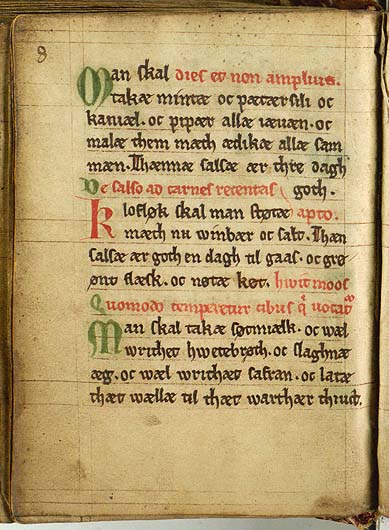 8
Man skal dies et non amplius.
takæ mintæ oc pætærsili oc
kaniæl. oc pipær allæ iæuæn. oc
malæ them mæth ædikæ allæ sam
mæn. Thænnæ salsæ ær thre dagh
De salso ad carnes recentas goth.
Klofløk skal man støtæ apto.
mæth nu winbær oc salt. Thæn
salsæ ær goth en dagh til gaas. oc grø
ønt flæsk. oc nøtæ køt. hwit moos
Quomodo temperetur cibus qͥ uocatᷣ
Man skal takæ søtmiælk. oc wæl
writhet hwetebrøth. oc slaghnæ
æg. oc wæl writhæt safran. oc latæ
thæt wællæ til thæt warthær thiuct.